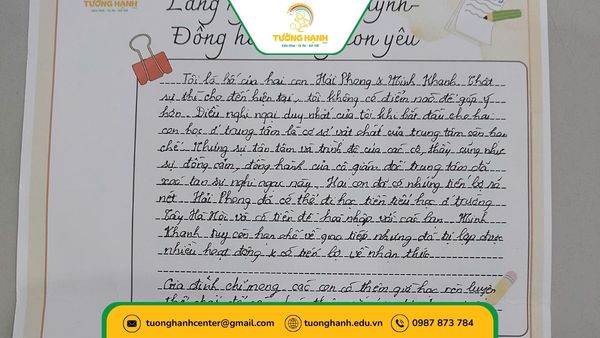 Lắng
TƯỜNG HẠNH
Đồng con yêu
Tôi là bố của hai con Hải Phong & Minh Khanh. Thật
sự thì cho đến hiện tại, tôi không có điểm nào để góp ý
hơn. Điều nghi ngại duy nhất của tôi khi bắt đầu cho hai
con học ở trung tâm là cơ sở vật chất của trung tâm còn hạn
chế. Nhưng sự tận tâm và trình độ của các cô, thầy cũng như
sự đồng cảm, đồng hành của cô giám đốc trung tâm đã
xoá tan sự nghi ngại này. Hai con đã có những tiến bộ rõ
nét. Hải Phong đã có thể đi học tiền tiểu học ở trường
Tây Hà Nội và có tiền đề hoà nhập với các bạn. Minh
Khanh tuy còn hạn chế về giao tiếp nhưng đã tự lập được
nhiều hoạt động & có tiến bộ về nhận thức.
Gia đình chỉ mong các con có thêm giờ học rèn luyện
tuonghanhcenter@gmail.com
tuonghanh.edu.vn
0987 873 784